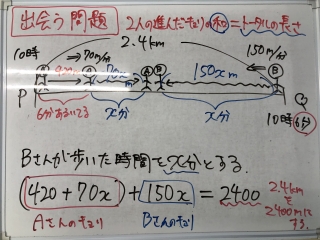 出会う問題
2人の進んだキョリの和=トータルの長さ
2.4km
10時
→70m/分
150m/分
A
A
A B
B
70x m
150x m
P
Q
6分あるいてる
x分
x分
10時6分
Bさんが歩いた時間をx分とする.
420+70x + 150x = 2400
Aさんのキョリ
Bさんのキョリ
2.4kmを
2400mに
する.